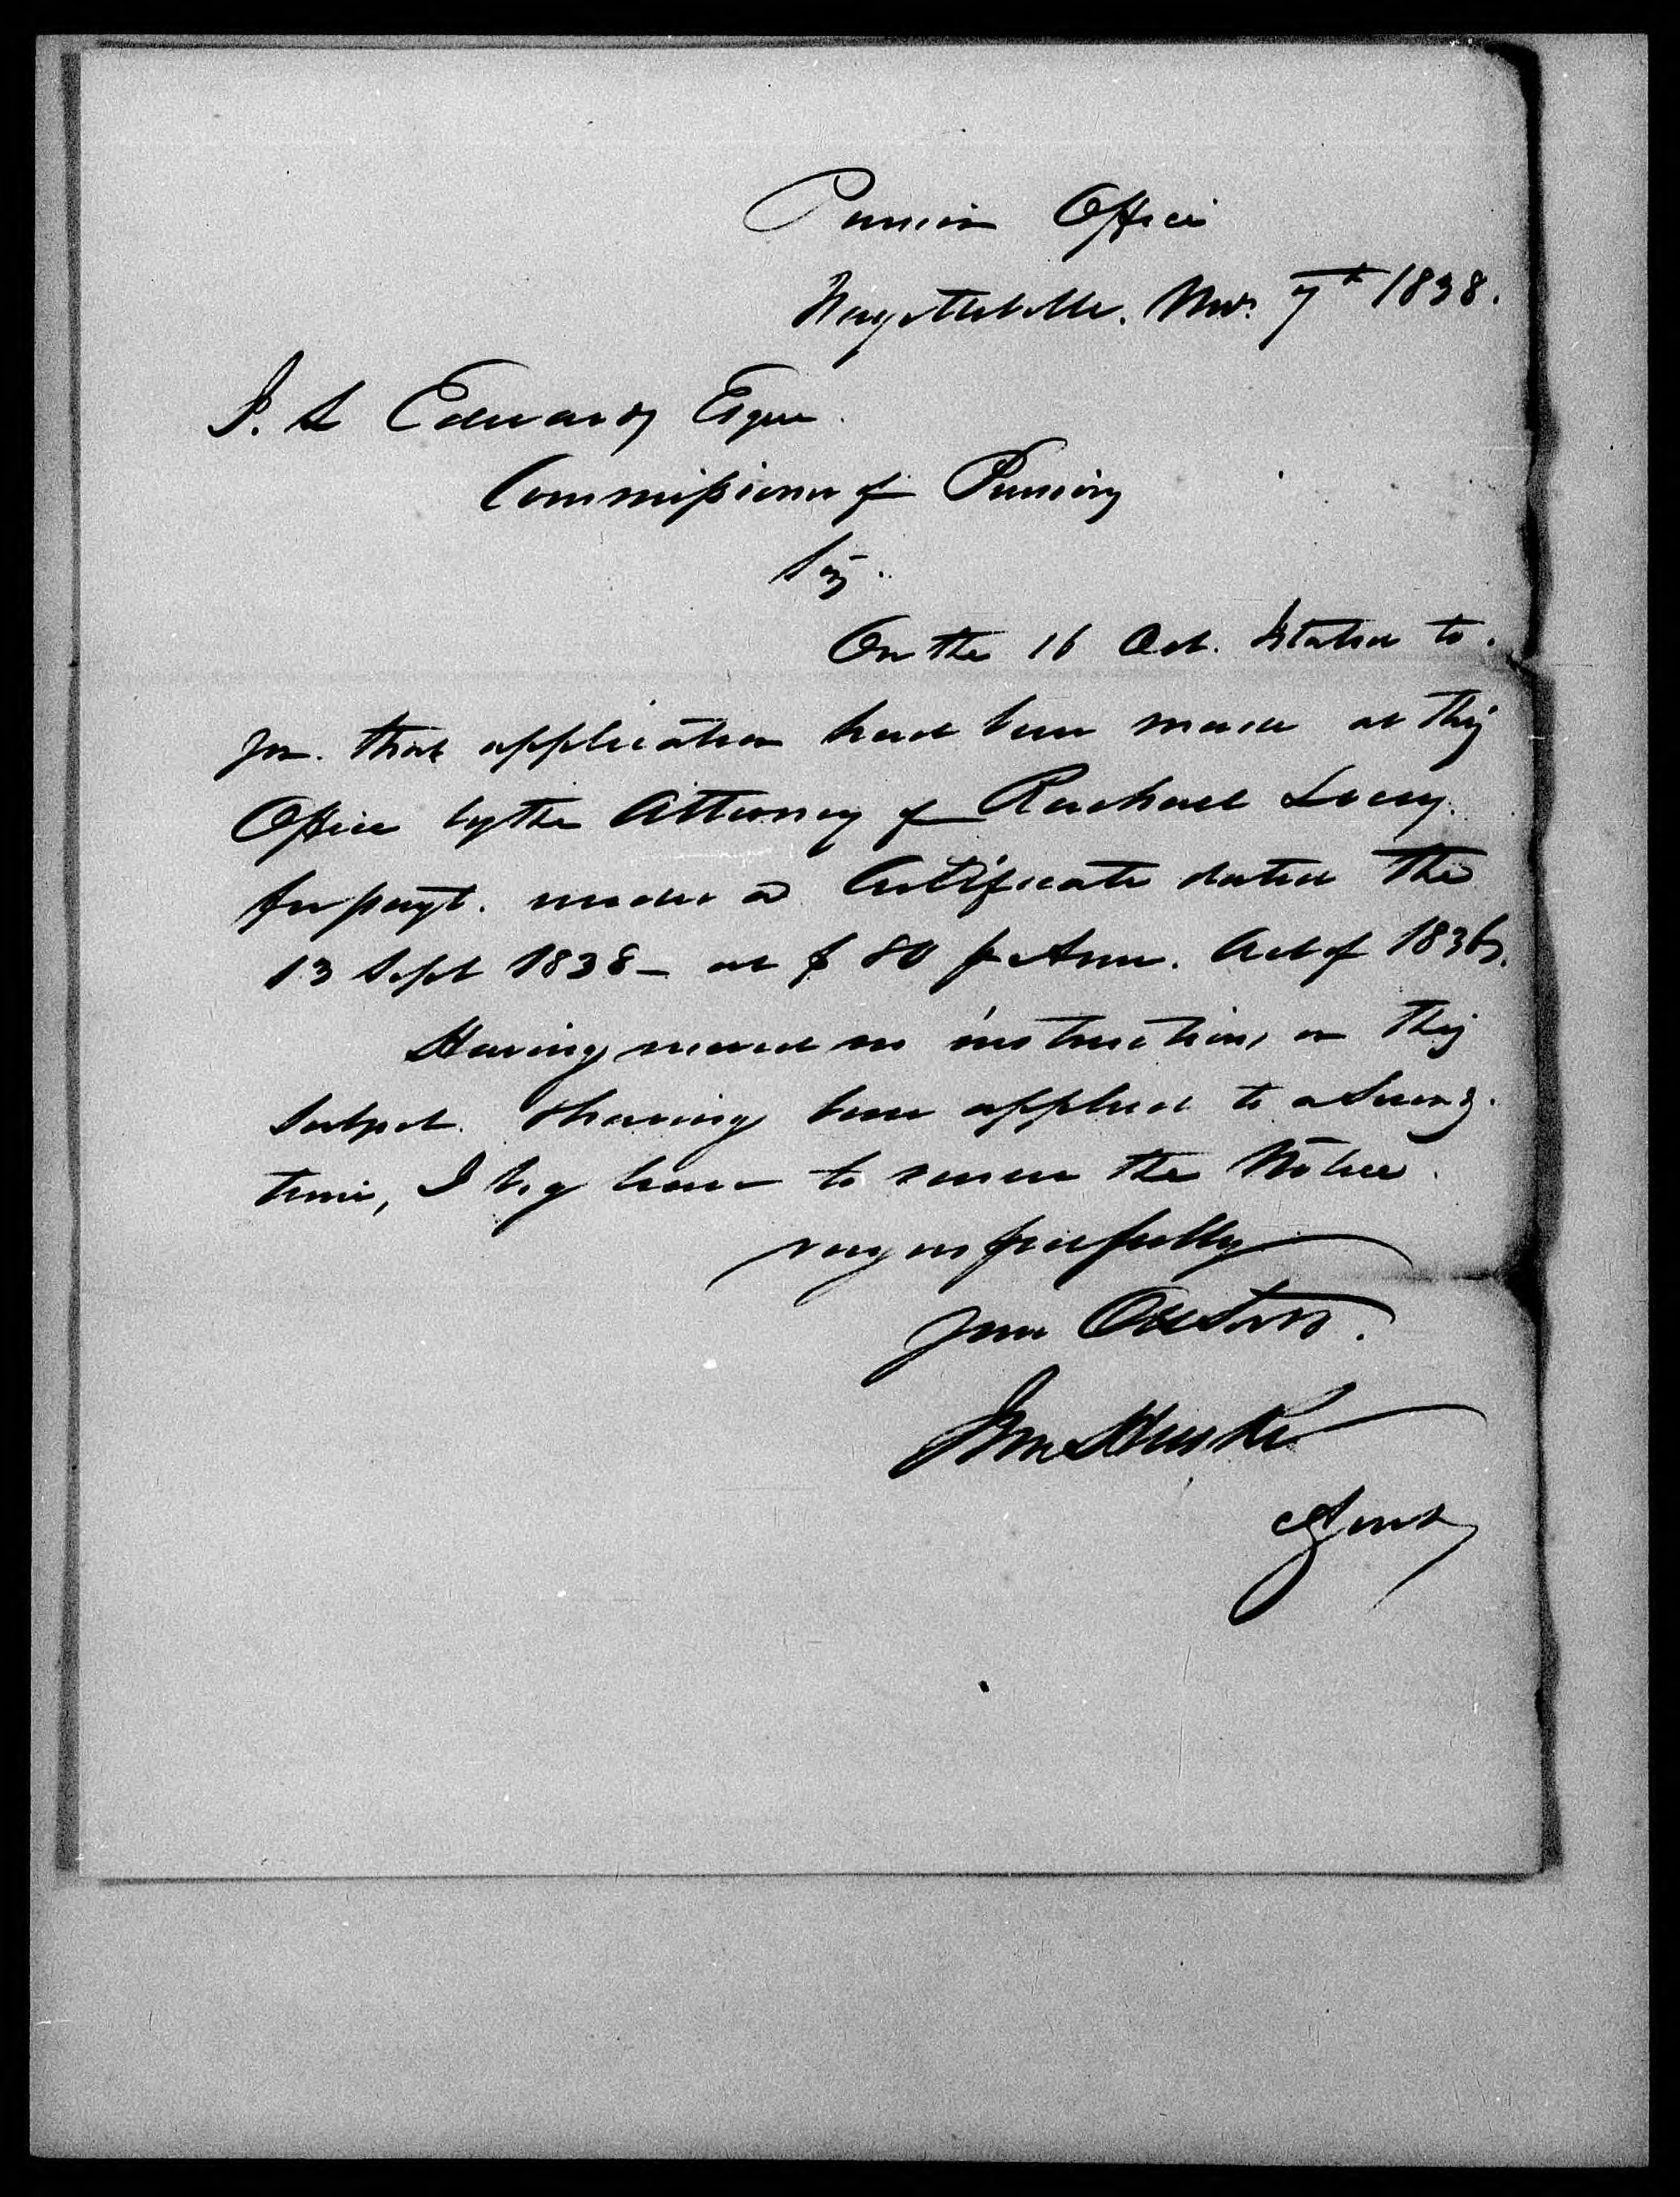 Pension Office
Fayetteville. Nov. 7th 1838.
J. L Edwards Esqre.
Commissioner of Pensions
Sir.
On the 16 Oct. I stated to.
you. that application had been made at this
Office by the Attorney of Rachael Locey.
for payt. under a Certificate dated the
13 Sept 1838 – at $ 80 pr Ann. Act of 1836.
Having received no instructions on this
subject & having been applied to a second.
time, I beg leave to renew the Notice.
very respectfully
your Obt Servt.
Jno Huske
Agent